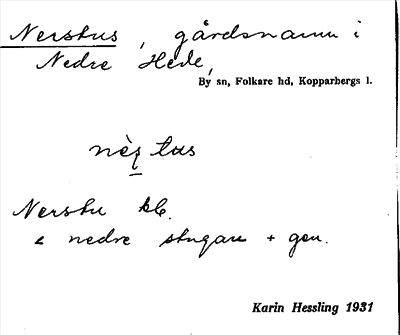 Nerstus, gårdsnamn i
Nedre Hede,
By sn, Folkare hd, Kopparbergs l.
tus
Nerstu
nedre stugan + gen.
Karin Hessling 1931